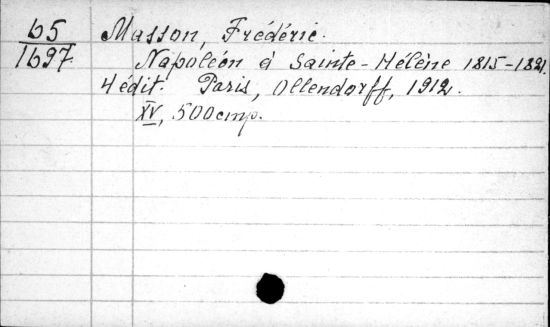 б5 Masson, Frédéric.
1697 Napoléon à Sainte-Hélène 1815-1821.
4 édit. Paris, Ollendorff, 1912.
XV, 500 стр.